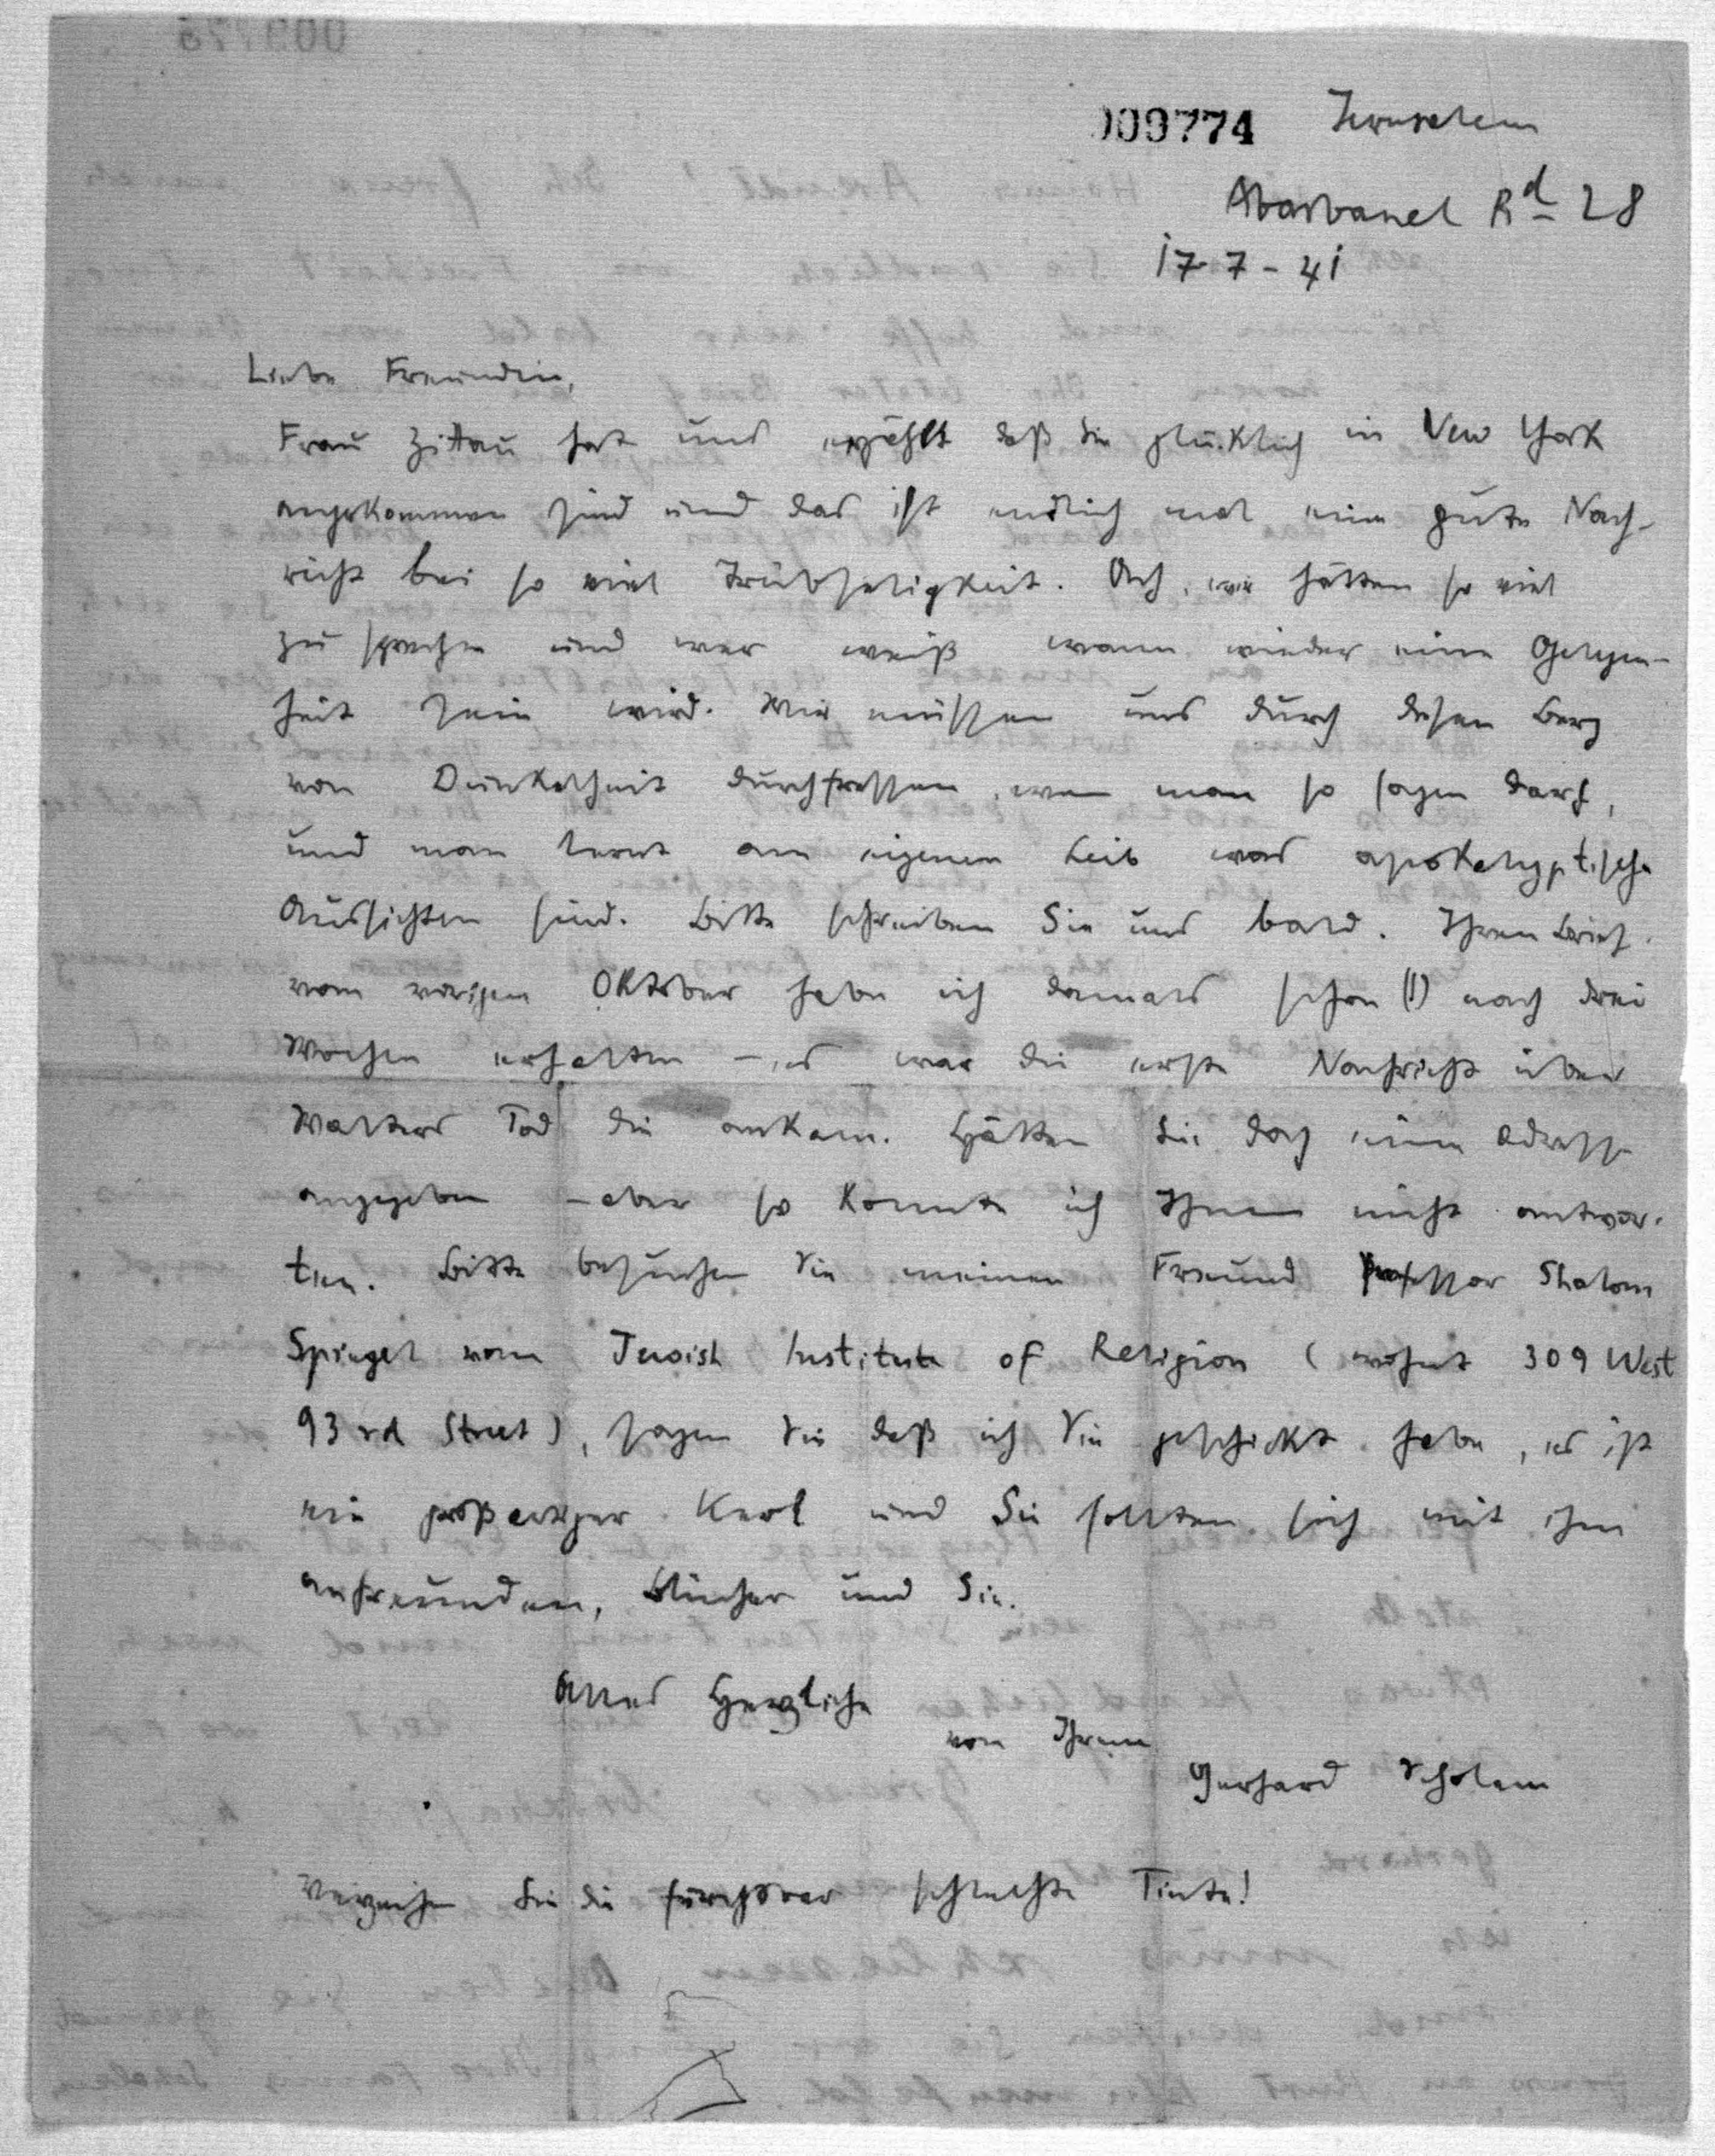 009774
Jerusalem
Abarbanel Rd 28
17-7-41
Liebe Freundin,
Frau Zittau hat uns erzählt daß Sie glücklich in New York
angekommen sind und das ist endlich mal eine gute Nach-
richt bei so viel Trübseligkeit. Ach, wir hätten so viel
zu sprechen und wer weiß wann wieder eine Gelegen-
heit sein wird. Wir müssen uns durch diesen Berg
von Dunkelheit durchfressen, wenn man so sagen darf,
und man lernt am eigenen Leib was apokalyptische
Aussichten sind. Bitte schreiben Sie uns bald. Ihren Brief
vom vorigen Oktober habe ich damals schon (!) nach drei
Wochen erhalten – es war die erste Nachricht über
Walters Tod die ankam. Hätten Sie doch eine Adresse
angegeben – aber so konnte ich Ihnen nicht antwor-
ten. Bitte besuchen Sie meinen Freund Professor Shalom
Spiegel vom Jewish Institute of Religion (wohnt 309 West
93rd Street), sagen Sie daß ich Sie geschickt habe, es ist
ein großartiger Kerl und Sie sollten sich mit ihm
anfreunden, Blücher und Sie.
Alles Herzliche
von Ihrem
Gerhard Scholem
Verzeihen Sie die furchtbar schlechte Tinte!